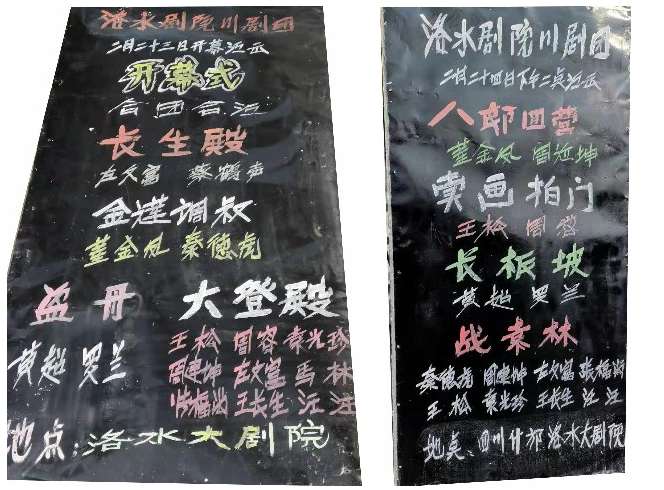 洛水剧院川剧团
二月二十三日开幕演出
开幕式
合团合江
长生殿
左文富 蔡鹤声
金莲调叔
董金凤 秦德虎
盗丹 大登殿
黄超 罗兰
王松 周容 秦光珍
周建坤 左文富 马林
张福尚 王长生 汪汪
地点:洛水大剧院
洛水剧院川剧团
二月二十四日下午二点演出
八郎回营
董金凤 周建坤
卖画拍门
王松 周容
长板坡
黄超 罗兰
战袁林
秦德虎 周建坤 左文富 张福尚
王松 秦光珍 王长生 汪汪
地点:四川什邡洛水大剧院